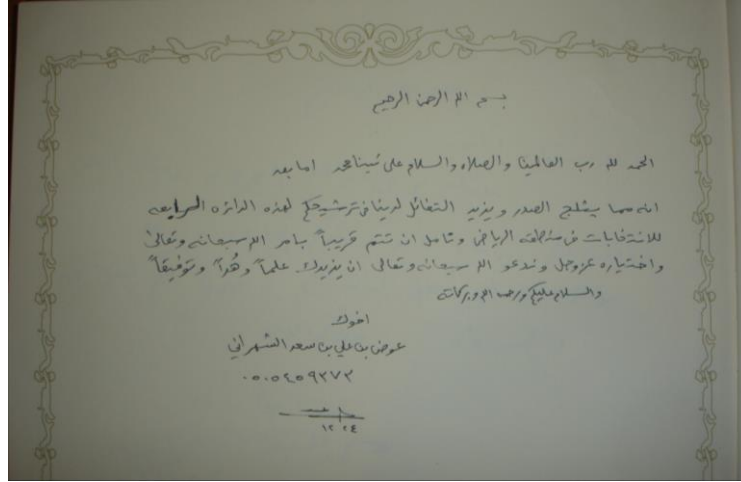 بسم الله الرحمن الرحيم
الحمد لله رب العالمين والصلاه والسلام على نبينا محمد اما بعد
انه مما يثلج الصدر ويزيد التفائل لدينا في ترشيحكم لهذه الدائره الرابعه
للانتخابات في منطقه الرياض ونامل ان تتم قريباً بامر الله سبحانه وتعالى
واختياره عز وجل وندعو الله سبحانه وتعالى ان يزيدك علماً وهُداً وتوفيقاً
والسلام عليكم ورحمه الله وبركاته
اخوك
عوض بن علي بن سعد الشهراني
٠٥٠٥٤٥٩٣٧٣
١٢ ٢٤